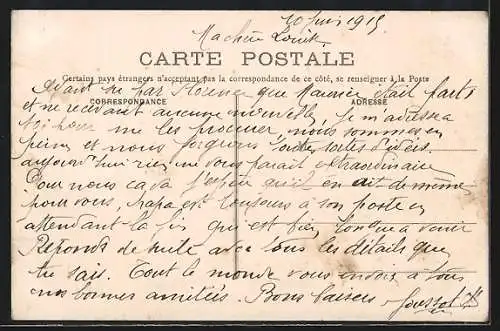 10 juin 1915
Ma chère Louise
CARTE POSTALE
Certains pays étrangers n'acceptant pas la correspondance de ce côté, se renseigner à la Poste
Ayant su par Florence que Maurice était parti
CORRESPONDANCE
ADRESSE
et ne recevant aucune nouvelle, je m'adresse à
toi pour me les procurer, nous sommes en
peine et nous forgeons toutes sortes d'idées.
aujourd'hui rien ne vous paraît extraordinaire
Pour nous ça va j'espère qu'il en de même
pour vous, Papa est toujours à son poste en
attendant la fin qui est bien longue à venir
Réponds de suite avec tous les détails que
tu sais. Tout le monde vous envoie à tous
nos bonnes amitiés. Bons baisers